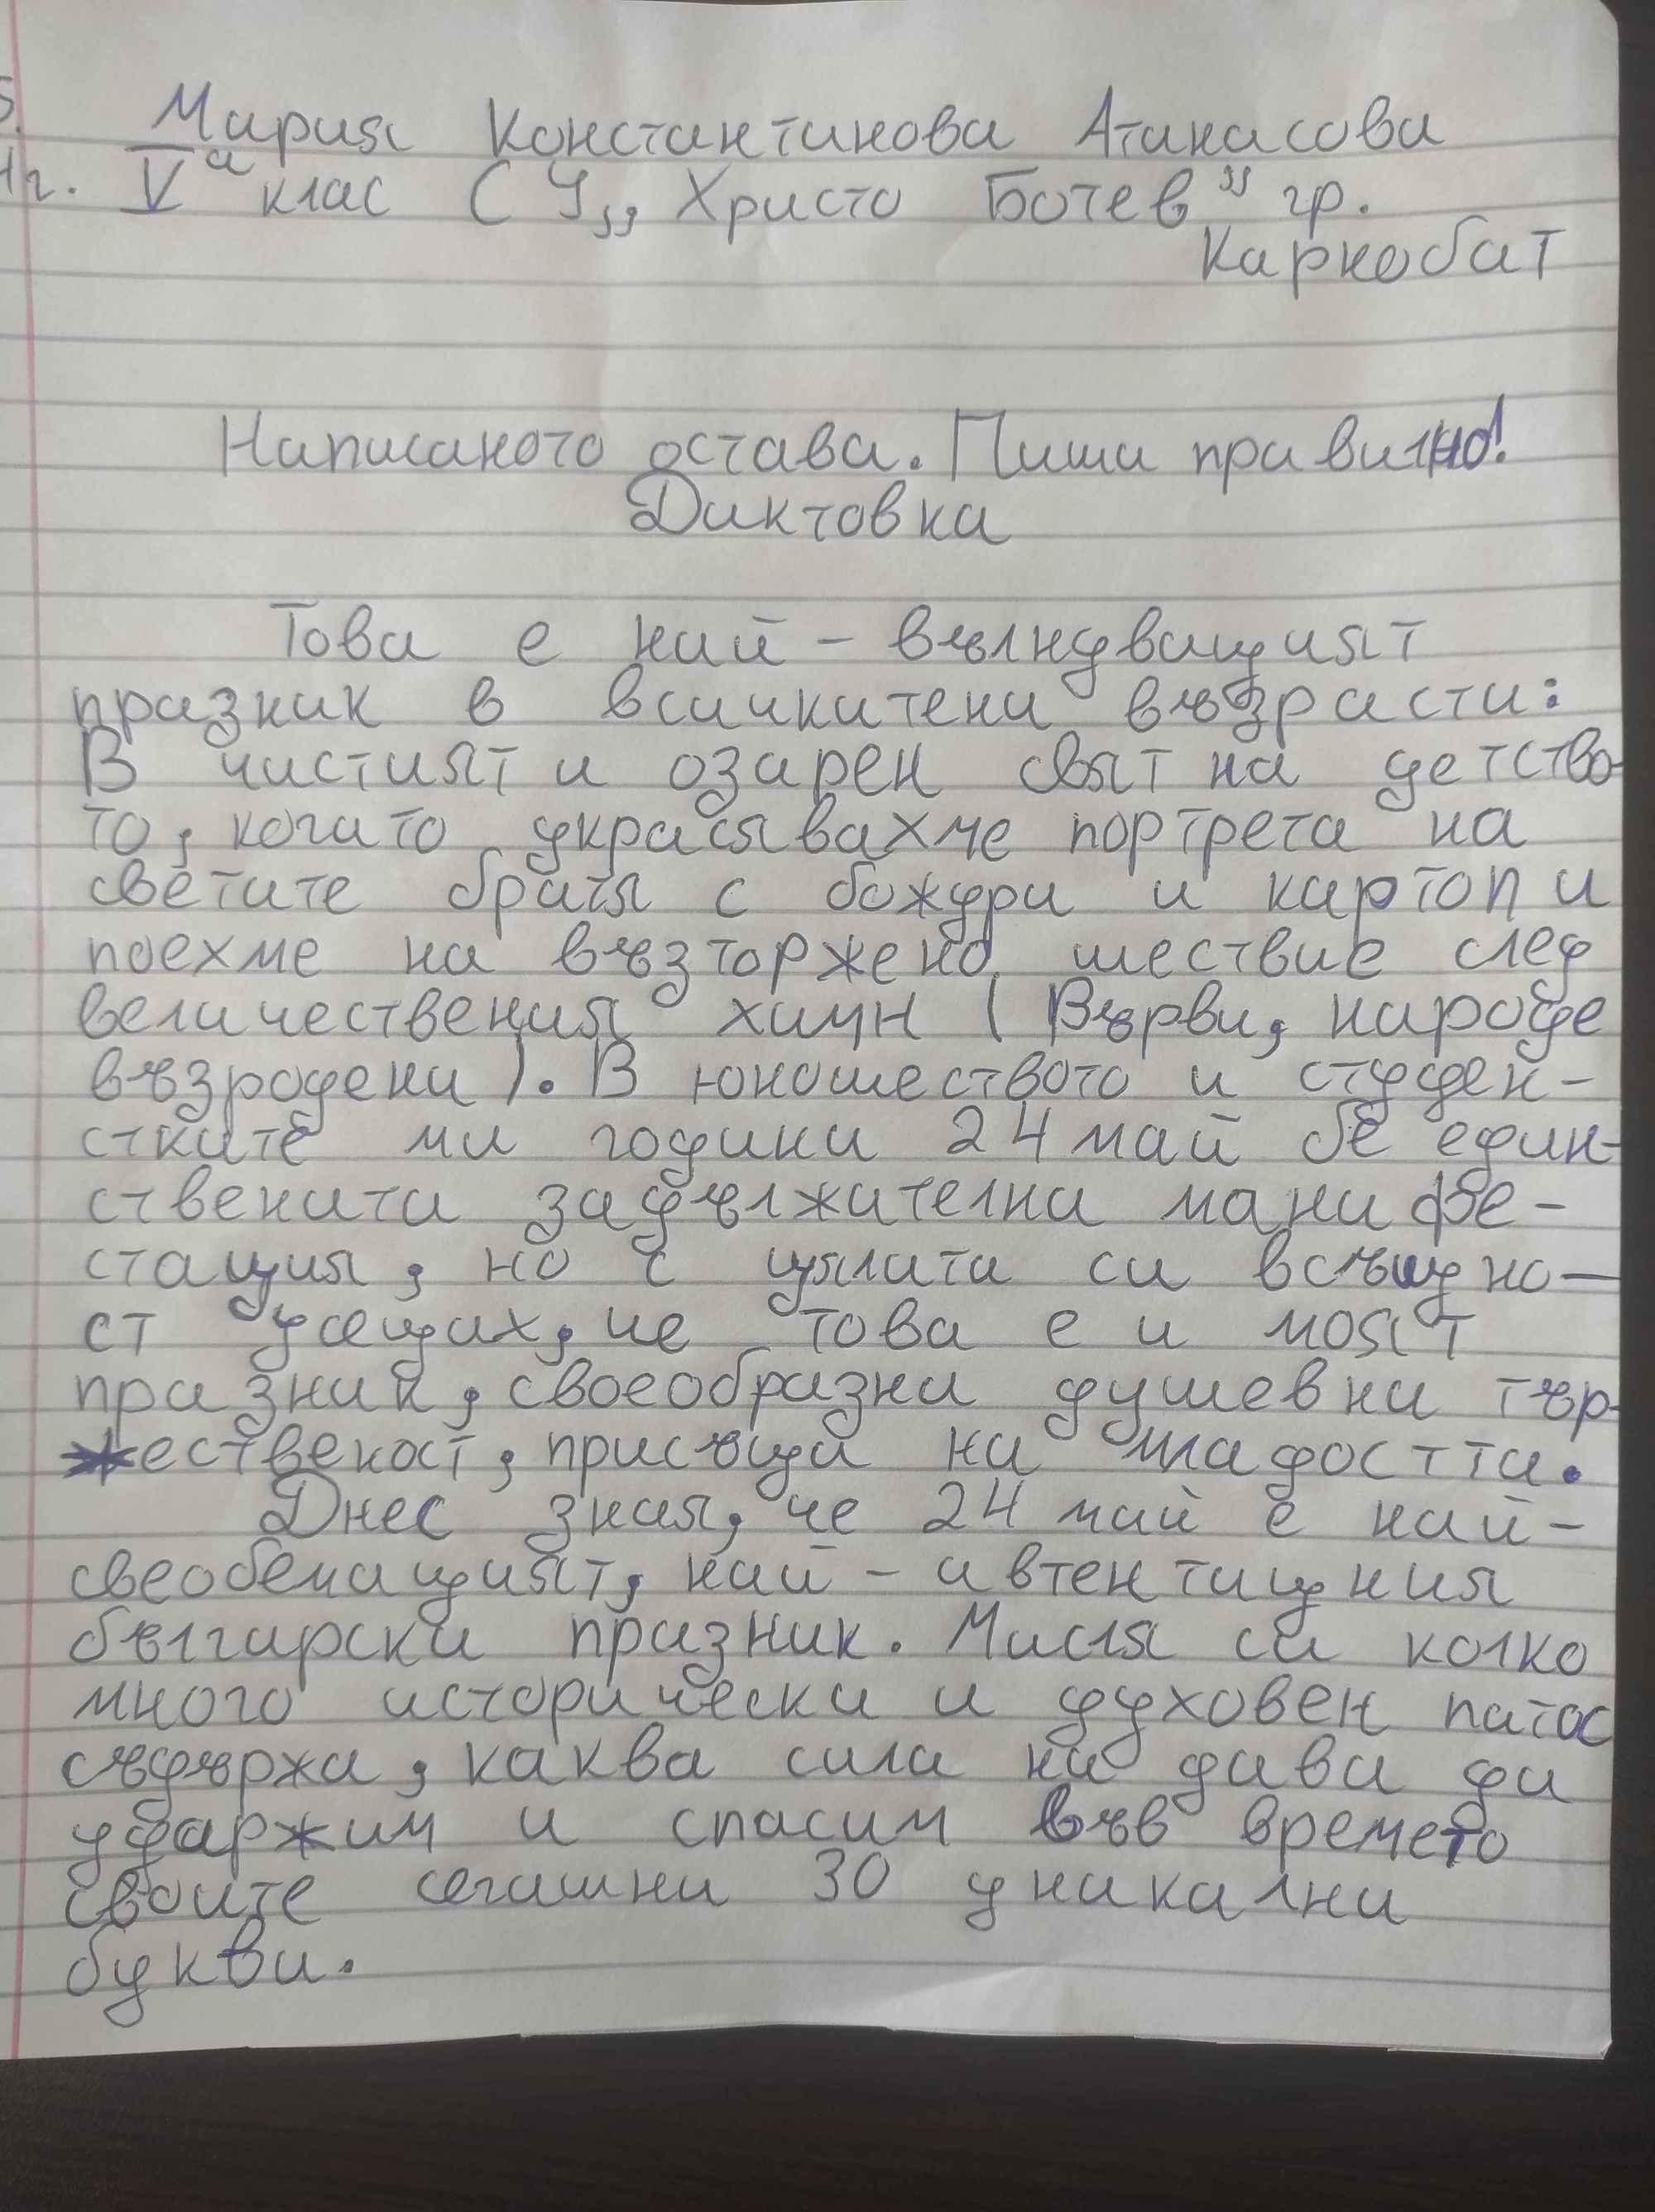 Мария Константинова Атанасова
г. V а клас СУ,, Христо Ботев" гр.
Карнобат
Написаното остава. Пиши правилно!
Диктовка
Това е най - вълнуващият
празник в всичкитени възрасти:
В чистият и озарен свят на детство-
то, когато украсявахме портрета на
светите братя с божури и картоп и
поехме на възторжено шествие след
величествения химн ( Върви, народе
възродени ). В юношеството и студен-
стките ми години 24 май бе един-
ствената задължителна манифе-
стация, но с цялата си всъщно-
ст усещах, че това е и моят
празник, своеобразна душевна тър-
жественост, присъща на младостта.
Днес зная, че 24 май е най-
свеобемащият, най - автентицния
български празник. Мисля си колко
много исторически и духовен патос
съдържа, каква сила ни дава да
ударжим и спасим във времето
своите сегашни 30 уникални
букви.